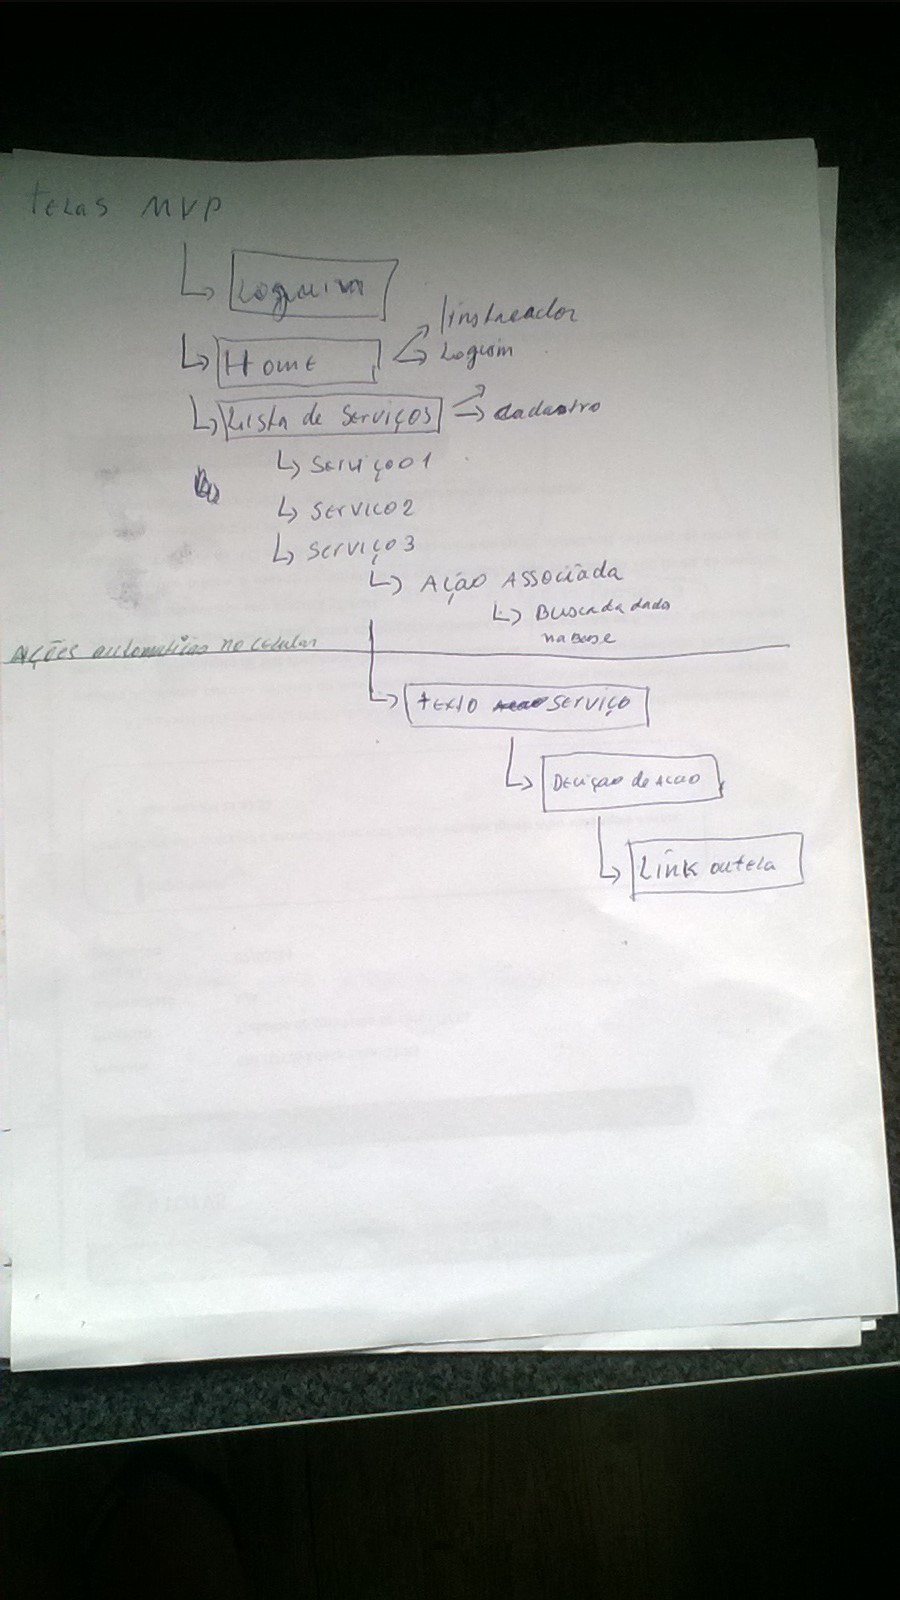 telas MVP
Loguim
Home
Loguim
Lista de serviços
cadastro
serviço01
servico2
serviço3
Ação Associada
Buscada dado
na Base
Ações automaticas no celular
texto serviço
Deciçao de Acao
Link ou tela